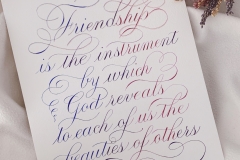 Friendship
is the instrument
by which
God reveals
to each of us the
beauties of others